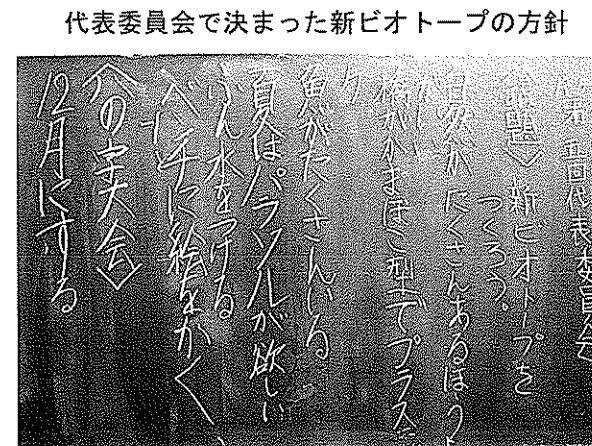 代表委員会で決まった新ビオトープの方針
五回代表委員会
議題〉新ビオトープを
つくろう。
自然がたくさんあるほう
橋がかまぼこ型でプラス
魚がたくさんいる
夏はパラソルが欲しい
ふん水をつける
ベンチに絵をかく、
の字大会〉
12月にする